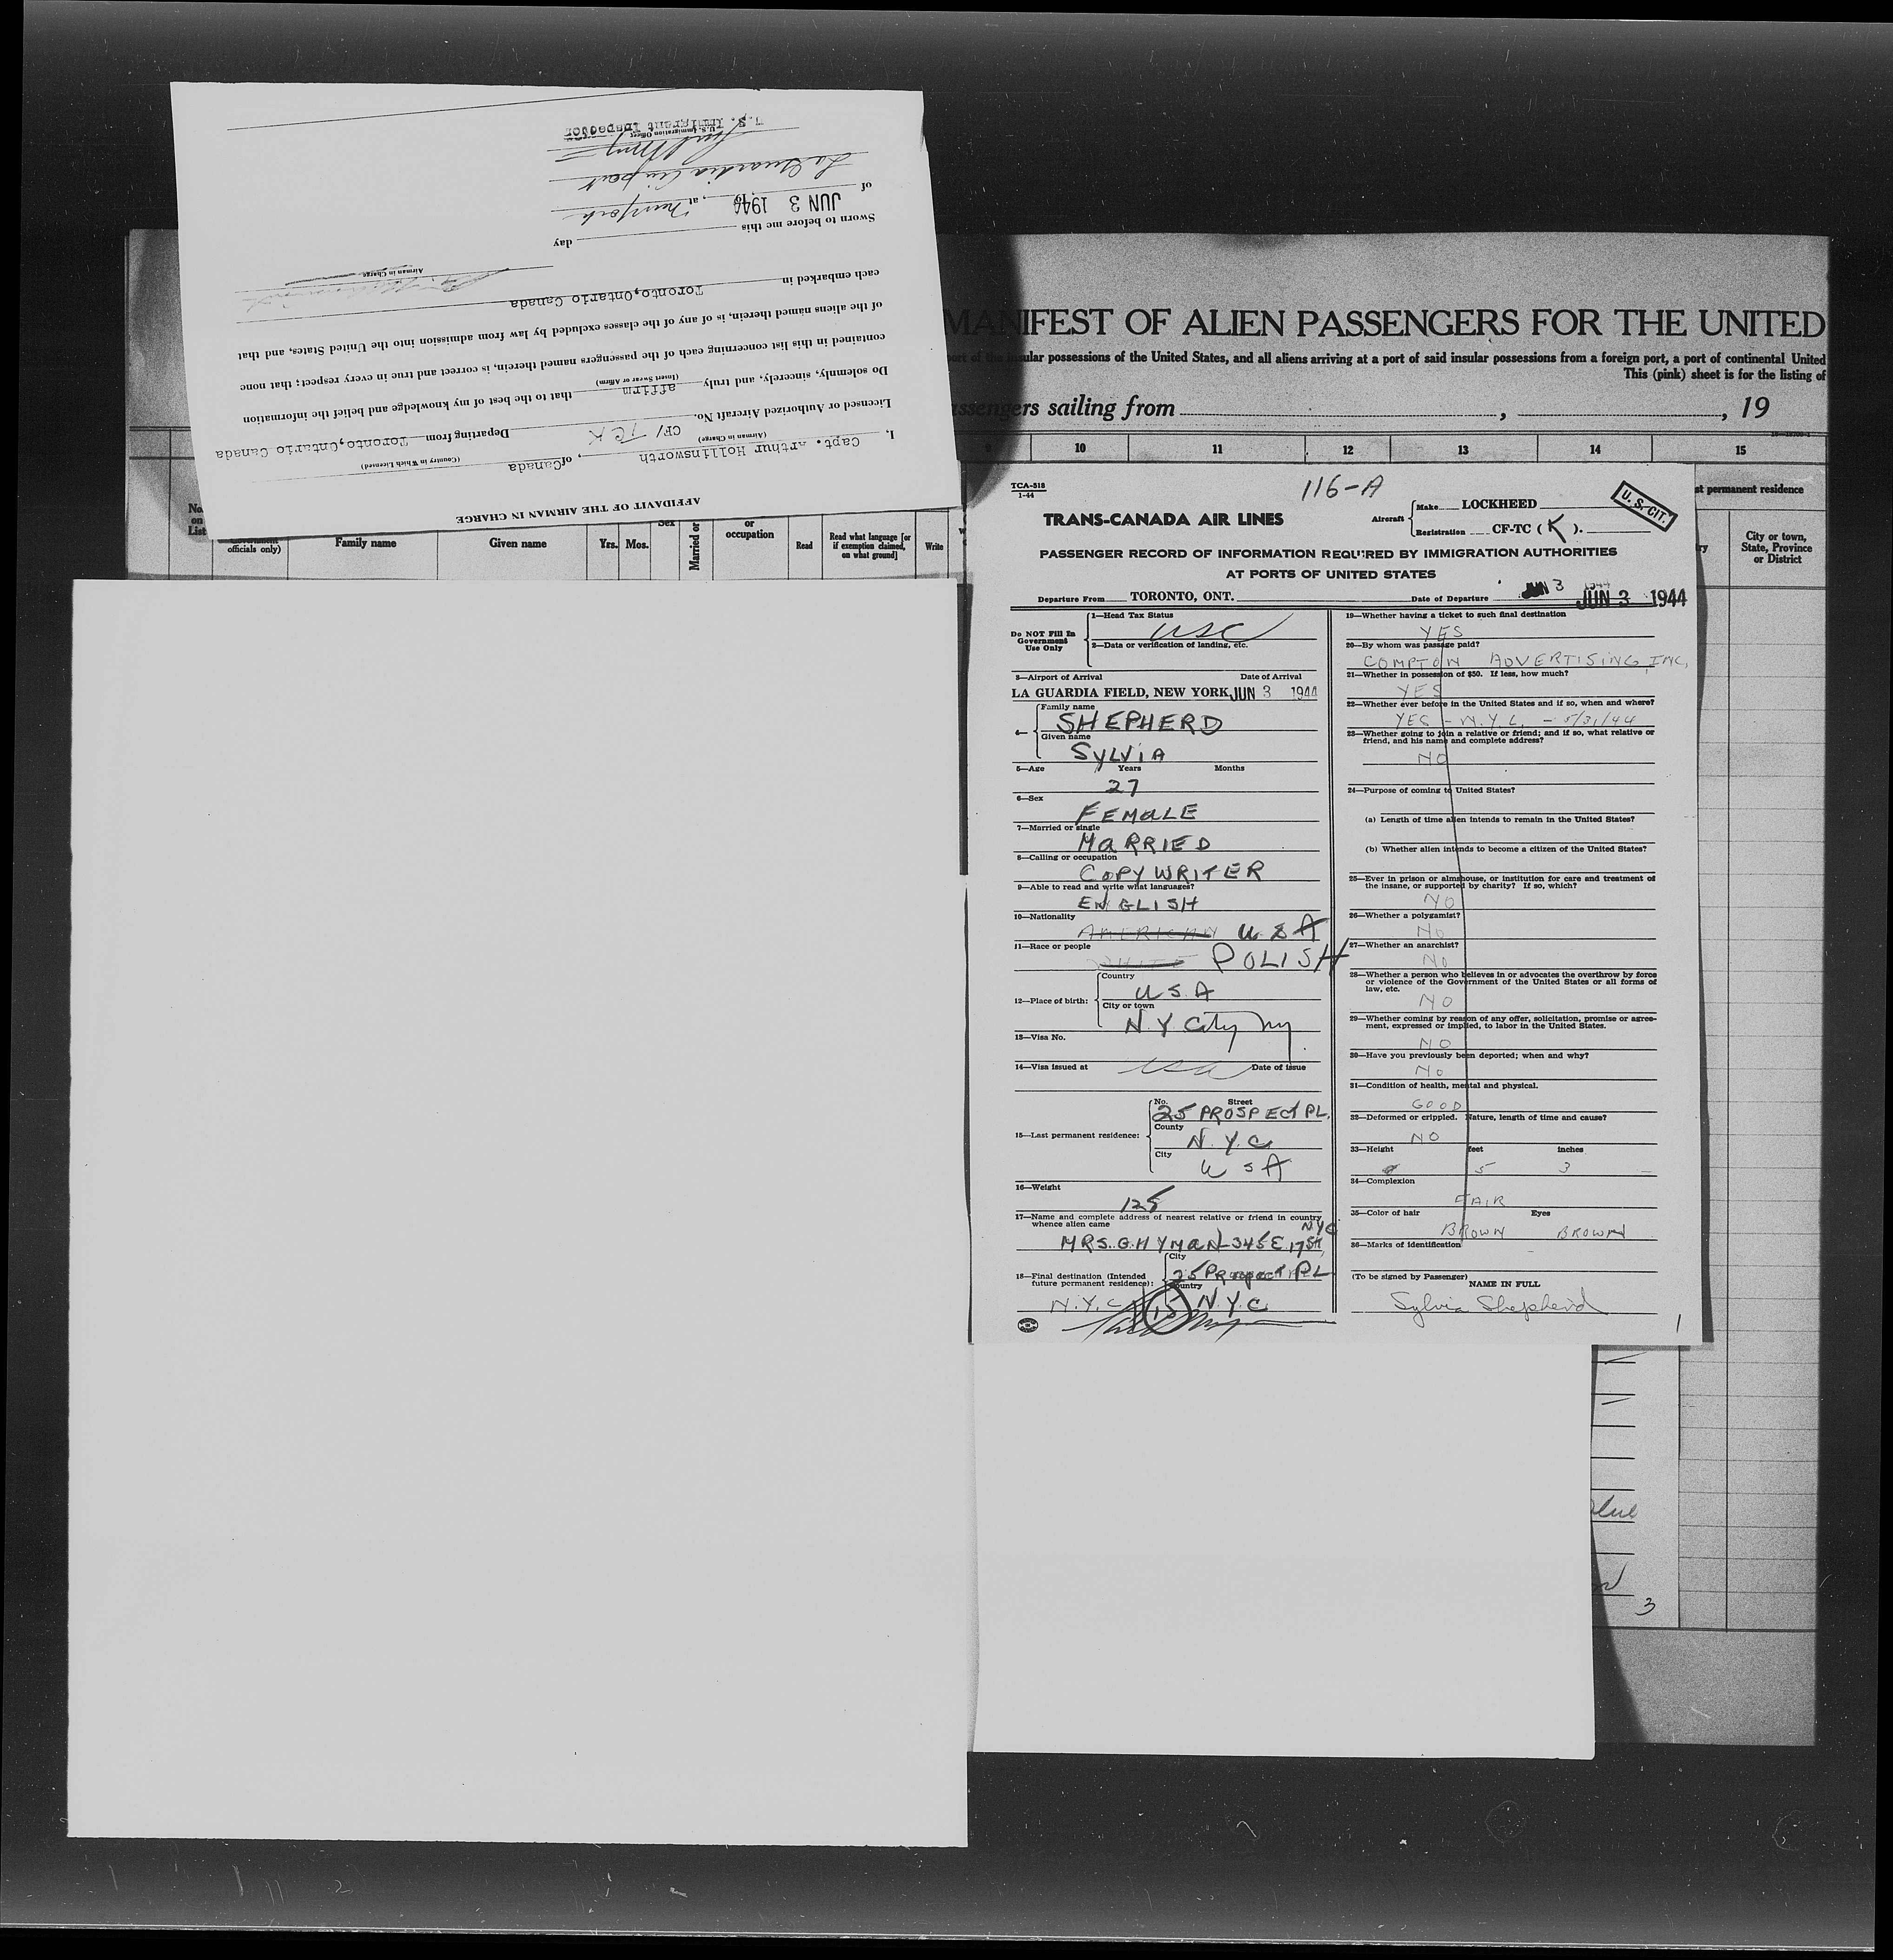 AFFIDAVIT OF THE AIRMAN IN CHARGE
I, Capt. Arthur Hollinsworth, of Canada
(Airman in Charge) (Country in Which Licensed)
Licensed or Authorized Aircraft No. CF/ TCK Departing from Toronto, Ontario Canada
Do solemnly, sincerely, and truly affirm that to the best of my knowledge and belief the information
(Insert Swear or Affirm)
contained in this list concerning each of the passengers named therein, is correct and true in every respect; that none
of the aliens named therein, is of any of the classes excluded by law from admission into the United States, and that
each embarked in Toronto, Ontario Canada
Airman in Charge
Sworn to before me this day
of JUN 3 1944, at New York
La Guardia Airport
U.S. Immigration Officer
U.S. Immigrant Inspector
MANIFEST OF ALIEN PASSENGERS FOR THE UNITED
port of the insular possessions of the United States, and all aliens arriving at a port of said insular possessions from a foreign port, a port of continental United
This (pink) sheet is for the listing of
assengers sailing from , , 19
9 10 11 12 13 14 15
No. on List
officials only)
Family name
Given name
Yrs. Mos.
Sex
Married or
or occupation
Read
Read what language [or if exemption claimed, on what ground]
Write
st permanent residence
City or town, State, Province or District
TCA-518
1-44
116-A
U. S. CIT.
TRANS-CANADA AIR LINES
Aircraft
Make LOCKHEED
Registration CF-TC ( K ).
PASSENGER RECORD OF INFORMATION REQUIRED BY IMMIGRATION AUTHORITIES
AT PORTS OF UNITED STATES
Departure From TORONTO, ONT. Date of Departure JUN 3 1944 JUN 3 1944
Do NOT Fill In
Government
Use Only
1—Head Tax Status
USC
2—Data or verification of landing, etc.
3—Airport of Arrival Date of Arrival
LA GUARDIA FIELD, NEW YORK JUN 3 1944
Family name
SHEPHERD
Given name
SYLVIA
5—Age Years Months
27
6—Sex
FEMALE
7—Married or single
MARRIED
8—Calling or occupation
COPY WRITER
9—Able to read and write what languages?
ENGLISH
10—Nationality
AMERICAN U S A
11—Race or people
WHITE POLISH
12—Place of birth:
Country
U S A
City or town
N. Y City NY
13—Visa No.
14—Visa issued at Date of issue
15—Last permanent residence:
No. Street
25 PROSPECT PL.
County
N. Y. C
City
U S A
16—Weight
125
17—Name and complete address of nearest relative or friend in country
whence alien came
N.Y.C
MRS. G. HYMAN 345 E. 17 St.
18—Final destination (Intended
future permanent residence):
City
25 Prospect PL
Country
N.Y.C 15 N.Y.C.
19—Whether having a ticket to such final destination
YES
20—By whom was passage paid?
COMPTON ADVERTISING, INC.
21—Whether in possession of $50. If less, how much?
YES
22—Whether ever before in the United States and if so, when and where?
YES - N.Y.C. - 5/31/44
23—Whether going to join a relative or friend; and if so, what relative or
friend, and his name and complete address?
NO
24—Purpose of coming to United States?
(a) Length of time alien intends to remain in the United States?
(b) Whether alien intends to become a citizen of the United States?
25—Ever in prison or almshouse, or institution for care and treatment of
the insane, or supported by charity? If so, which?
NO
26—Whether a polygamist?
NO
27—Whether an anarchist?
NO
28—Whether a person who believes in or advocates the overthrow by force
or violence of the Government of the United States or all forms of
law, etc.
NO
29—Whether coming by reason of any offer, solicitation, promise or agree-
ment, expressed or implied, to labor in the United States.
NO
30—Have you previously been deported; when and why?
NO
31—Condition of health, mental and physical.
GOOD
32—Deformed or crippled. Nature, length of time and cause?
NO
33—Height feet inches
5 3
34—Complexion
FAIR
35—Color of hair Eyes
BROWN BROWN
36—Marks of identification
(To be signed by Passenger)
NAME IN FULL
Sylvia Shepherd
1
3